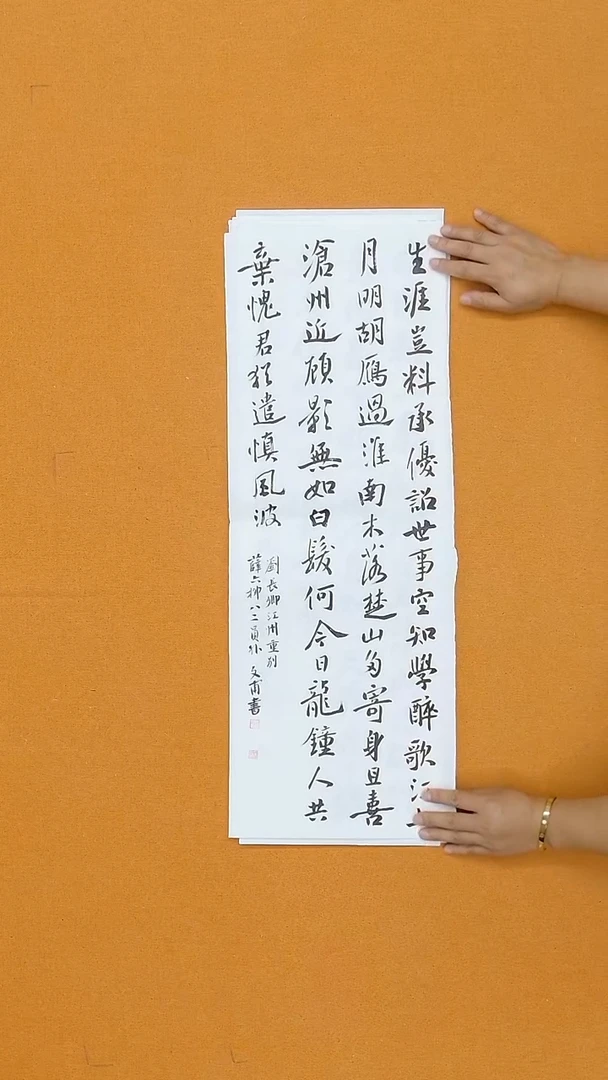 生涯豈料承優詔世事空知學醉歌江
月明胡鴈過淮南木落楚山多寄身且喜
滄州近顧影無如白髮何今日龍鐘人共
棄愧君猶遣慎風波
劉長卿江州重別
薛六柳八二員外 文甫書